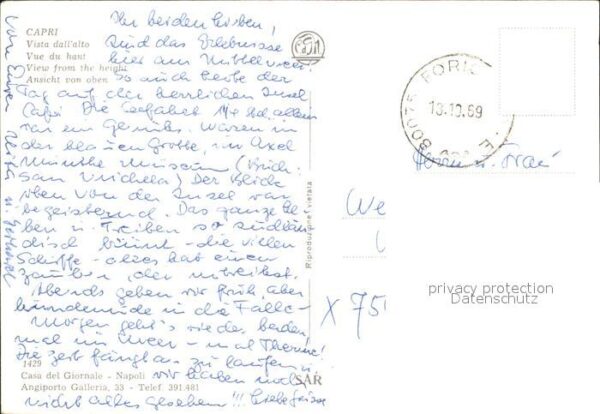 CAPRI
Vista dall'alto
Vue du haut
View from the height
Ansicht von oben
Ihr beiden Lieben!
Sind das Erlebnisse
hier am Mittelmeer.
So auch heute der
Tag auf der herrlichen Insel
Capri. Die Seefahrt 1¼ Std, allein
war ein Genuß. Waren in
der blauen Grotte, im Axel
Munthe Museum (Buch:
San Michele) Der Blick
oben von der Insel war
begeisternd. Das ganze Le-
ben u. Treiben so südlän-
disch bunt - die vielen
Schiffe - alles hat einen
Zauber, der mitreißt.
Abends gehen wir früh, aber
hundemüde in die Falle.
Morgen geht's wieder baden
mal im Meer - mal Therme!
Die Zeit fängt an zu laufen u.
wir haben noch
nicht alles gesehen!!! Liebe Grüsse
von Eurer
u.
1429
Casa del Giornale - Napoli
Angiporto Galleria, 33 - Telef. 391.481
SAR
Riproduzione vietata
80075 FORIO
13.10.69
Herrn u. Frau
We
X 75
privacy protection
Datenschutz